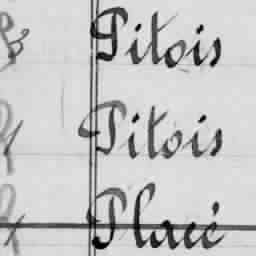 Pitois
Pitois
Placé